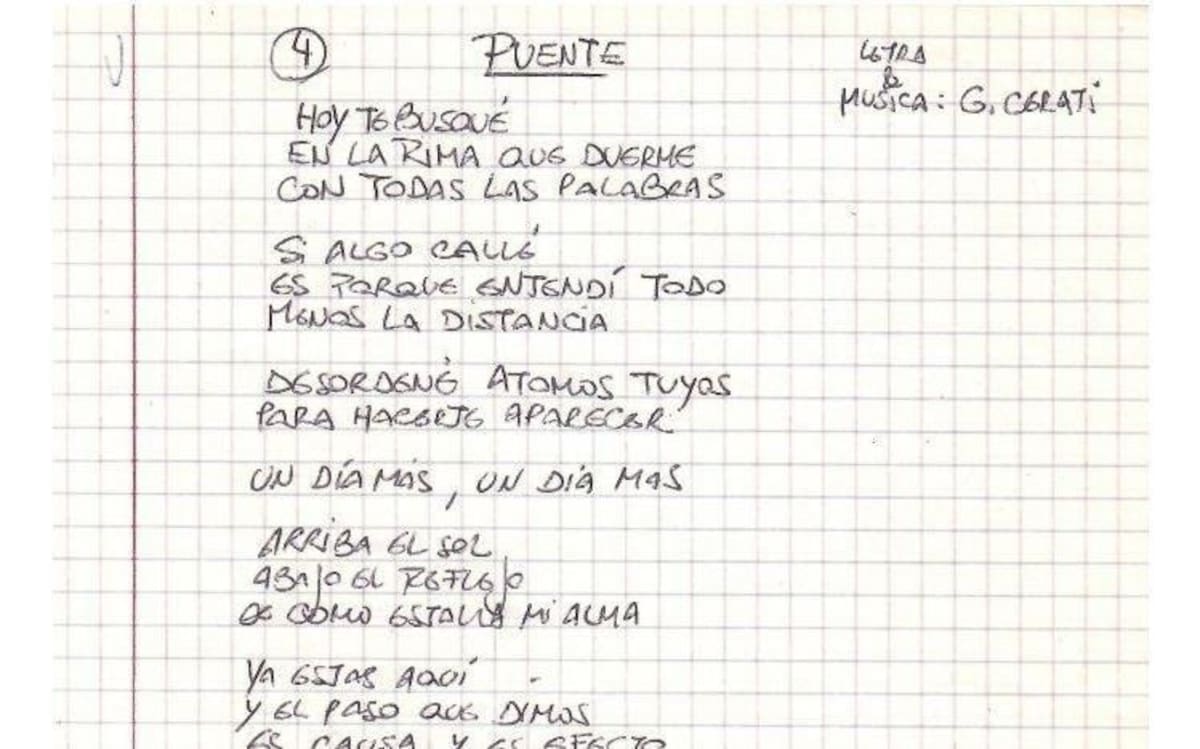 4 PUENTE
LETRA
&
MUSICA: G. CERATI
HOY TE BUSQUÉ
EN LA RIMA QUE DUERME
CON TODAS LAS PALABRAS
Si ALGO CALLÉ
ES PORQUE ENTENDÍ TODO
MENOS LA DISTANCIA
DESORDENÉ ATOMOS TUYOS
PARA HACERTE APARECER
UN DÍA MÁS, UN DÍA MAS
ARRIBA EL SOL
ABAJO EL REFLEJO
DE COMO ESTALLA Mi ALMA
YA ESTAS AQUÍ
Y EL PASO QUE DIMOS
ES CAUSA Y ES EFECTO